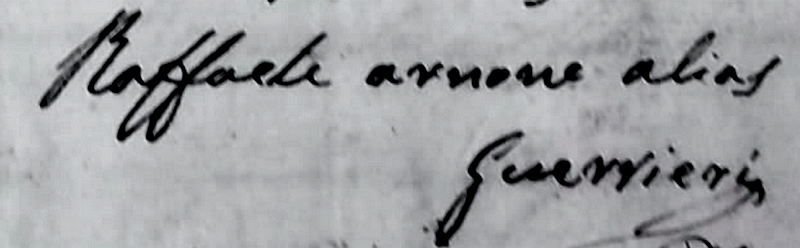 Raffaele arnone alias
Guerrieri